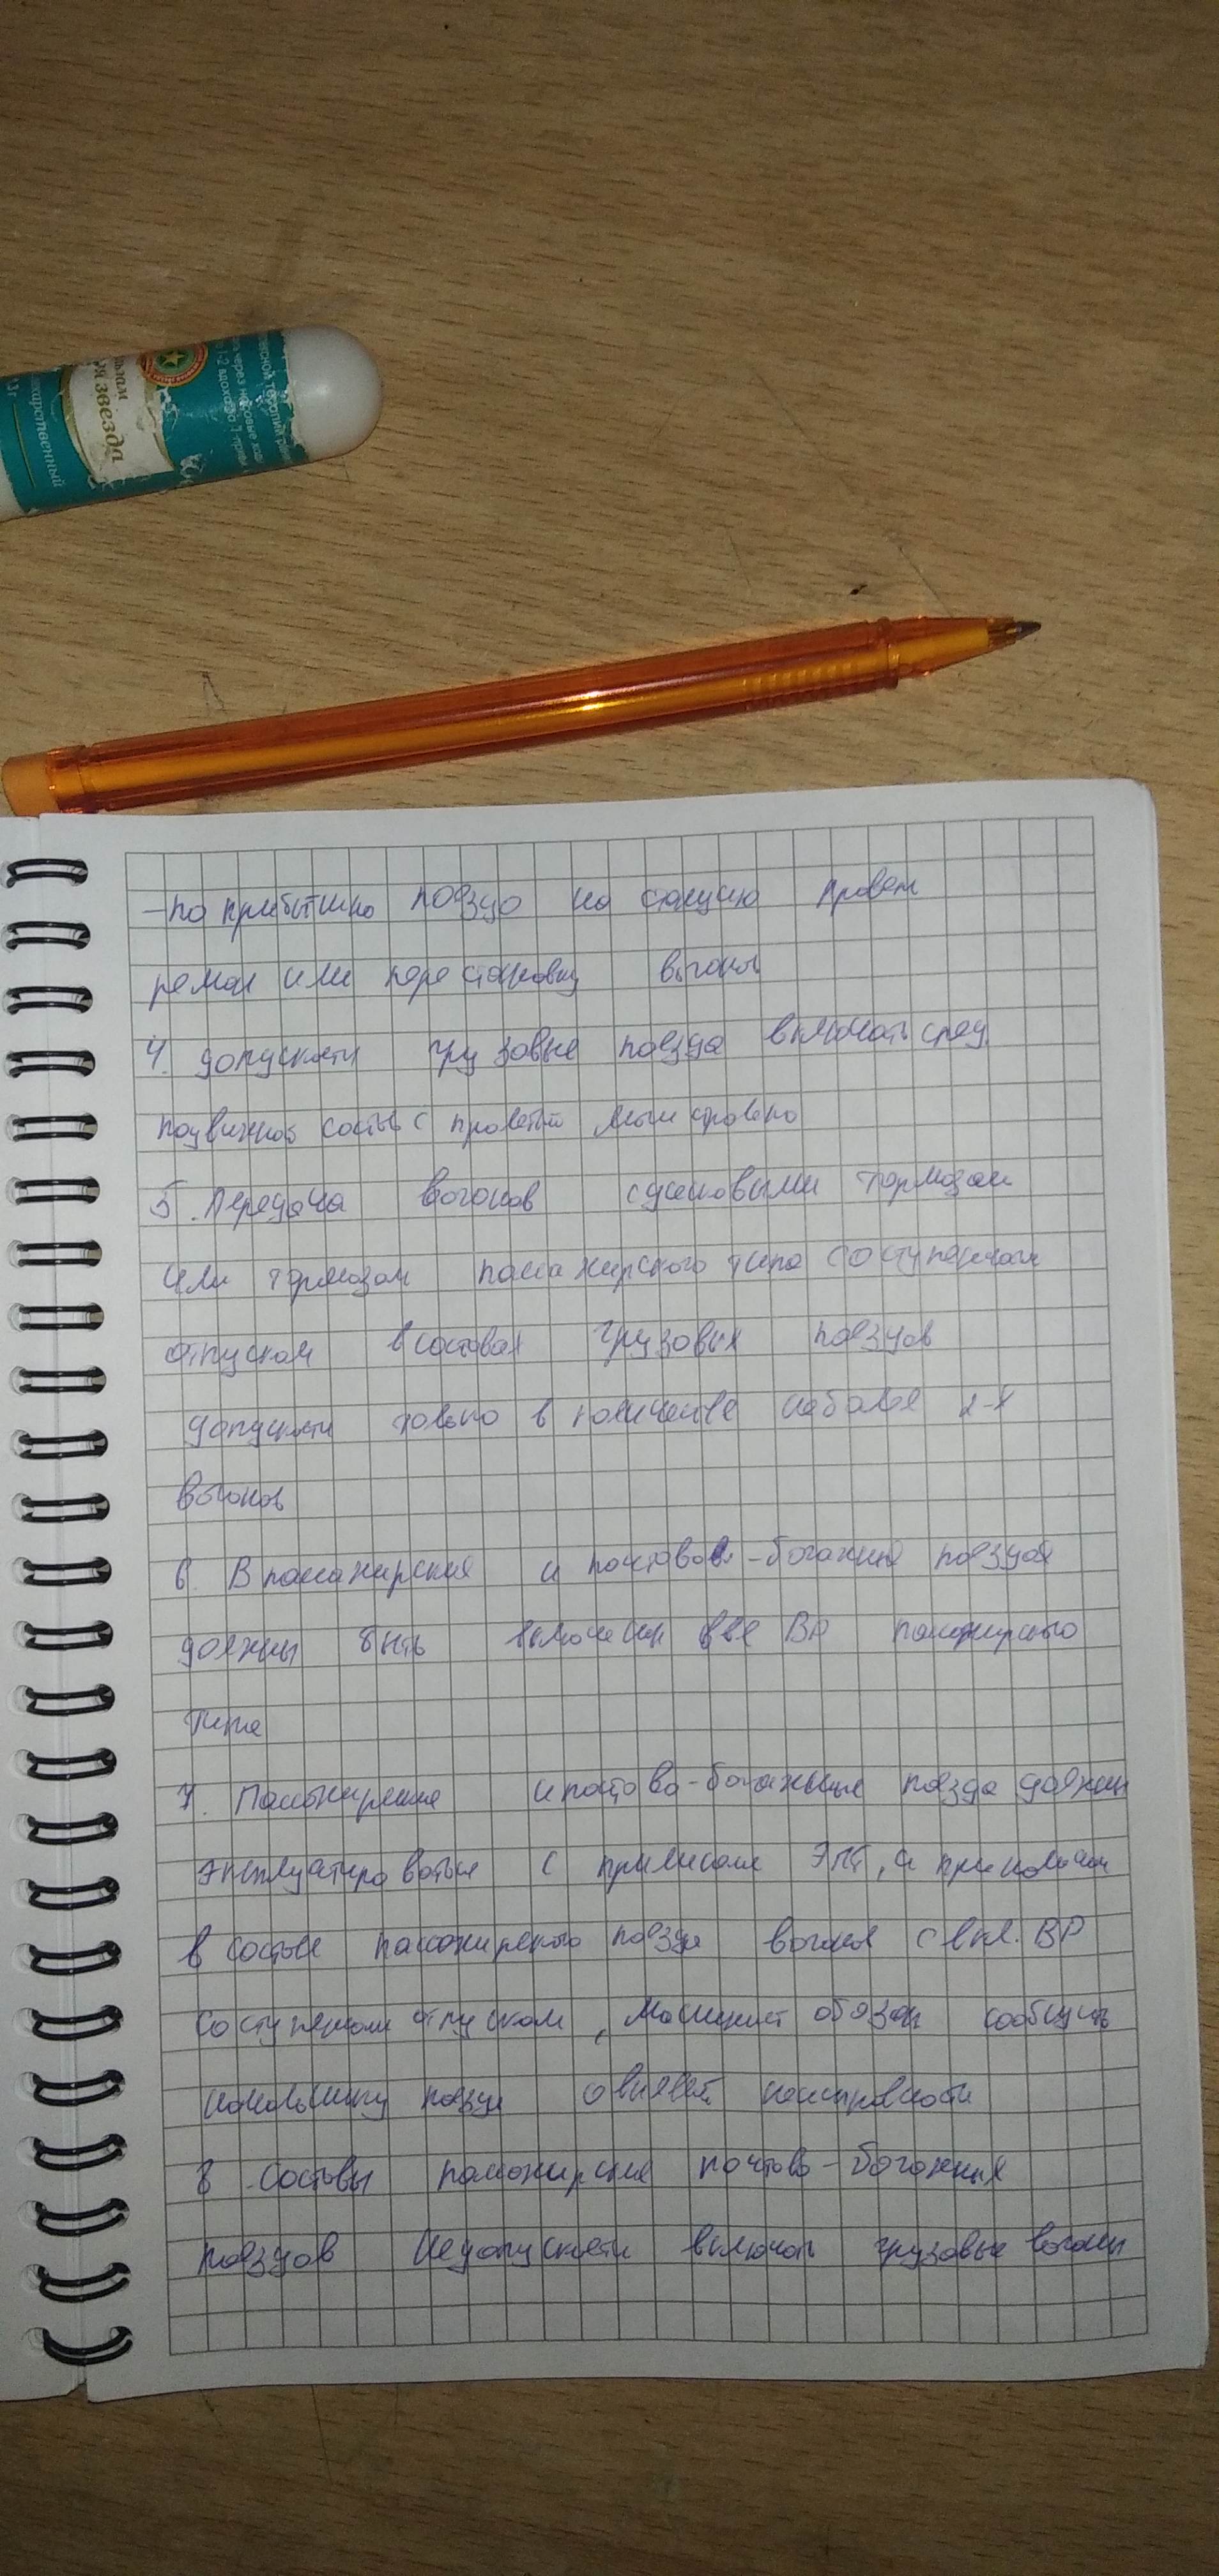 звезда
1-2 вдоха
через носовые
-по прибытию поезда на станцию провем
ремон или перестановку вагона
4. допускаети грузовые поезда включать след.
подвижной состав с пролетной магистралью
5. Передача вагонов с уеновыми тормозам
или тормозом пассажирского типа со ступенчатом
отпуском в составах грузовых поездов
допускаети только в количестве неболее 2-х
вагонов
6. В пассажирских и почтово-багажных поездах
должны быть включены все ВР пассажирского
типа
7. Пассажирские и почтово-багажные поезда должны
эксплуатироваться с приме ЭПТ, а при наличии
в составе пассажирского поезда вагонов с вкл. ВР
со ступенчатым отпуском, машинист обязан сообщить
начальнику поезда о неисправности
8. Составы пассажирских почтово-багажных
поездов недопускаети включать грузовые вагоны